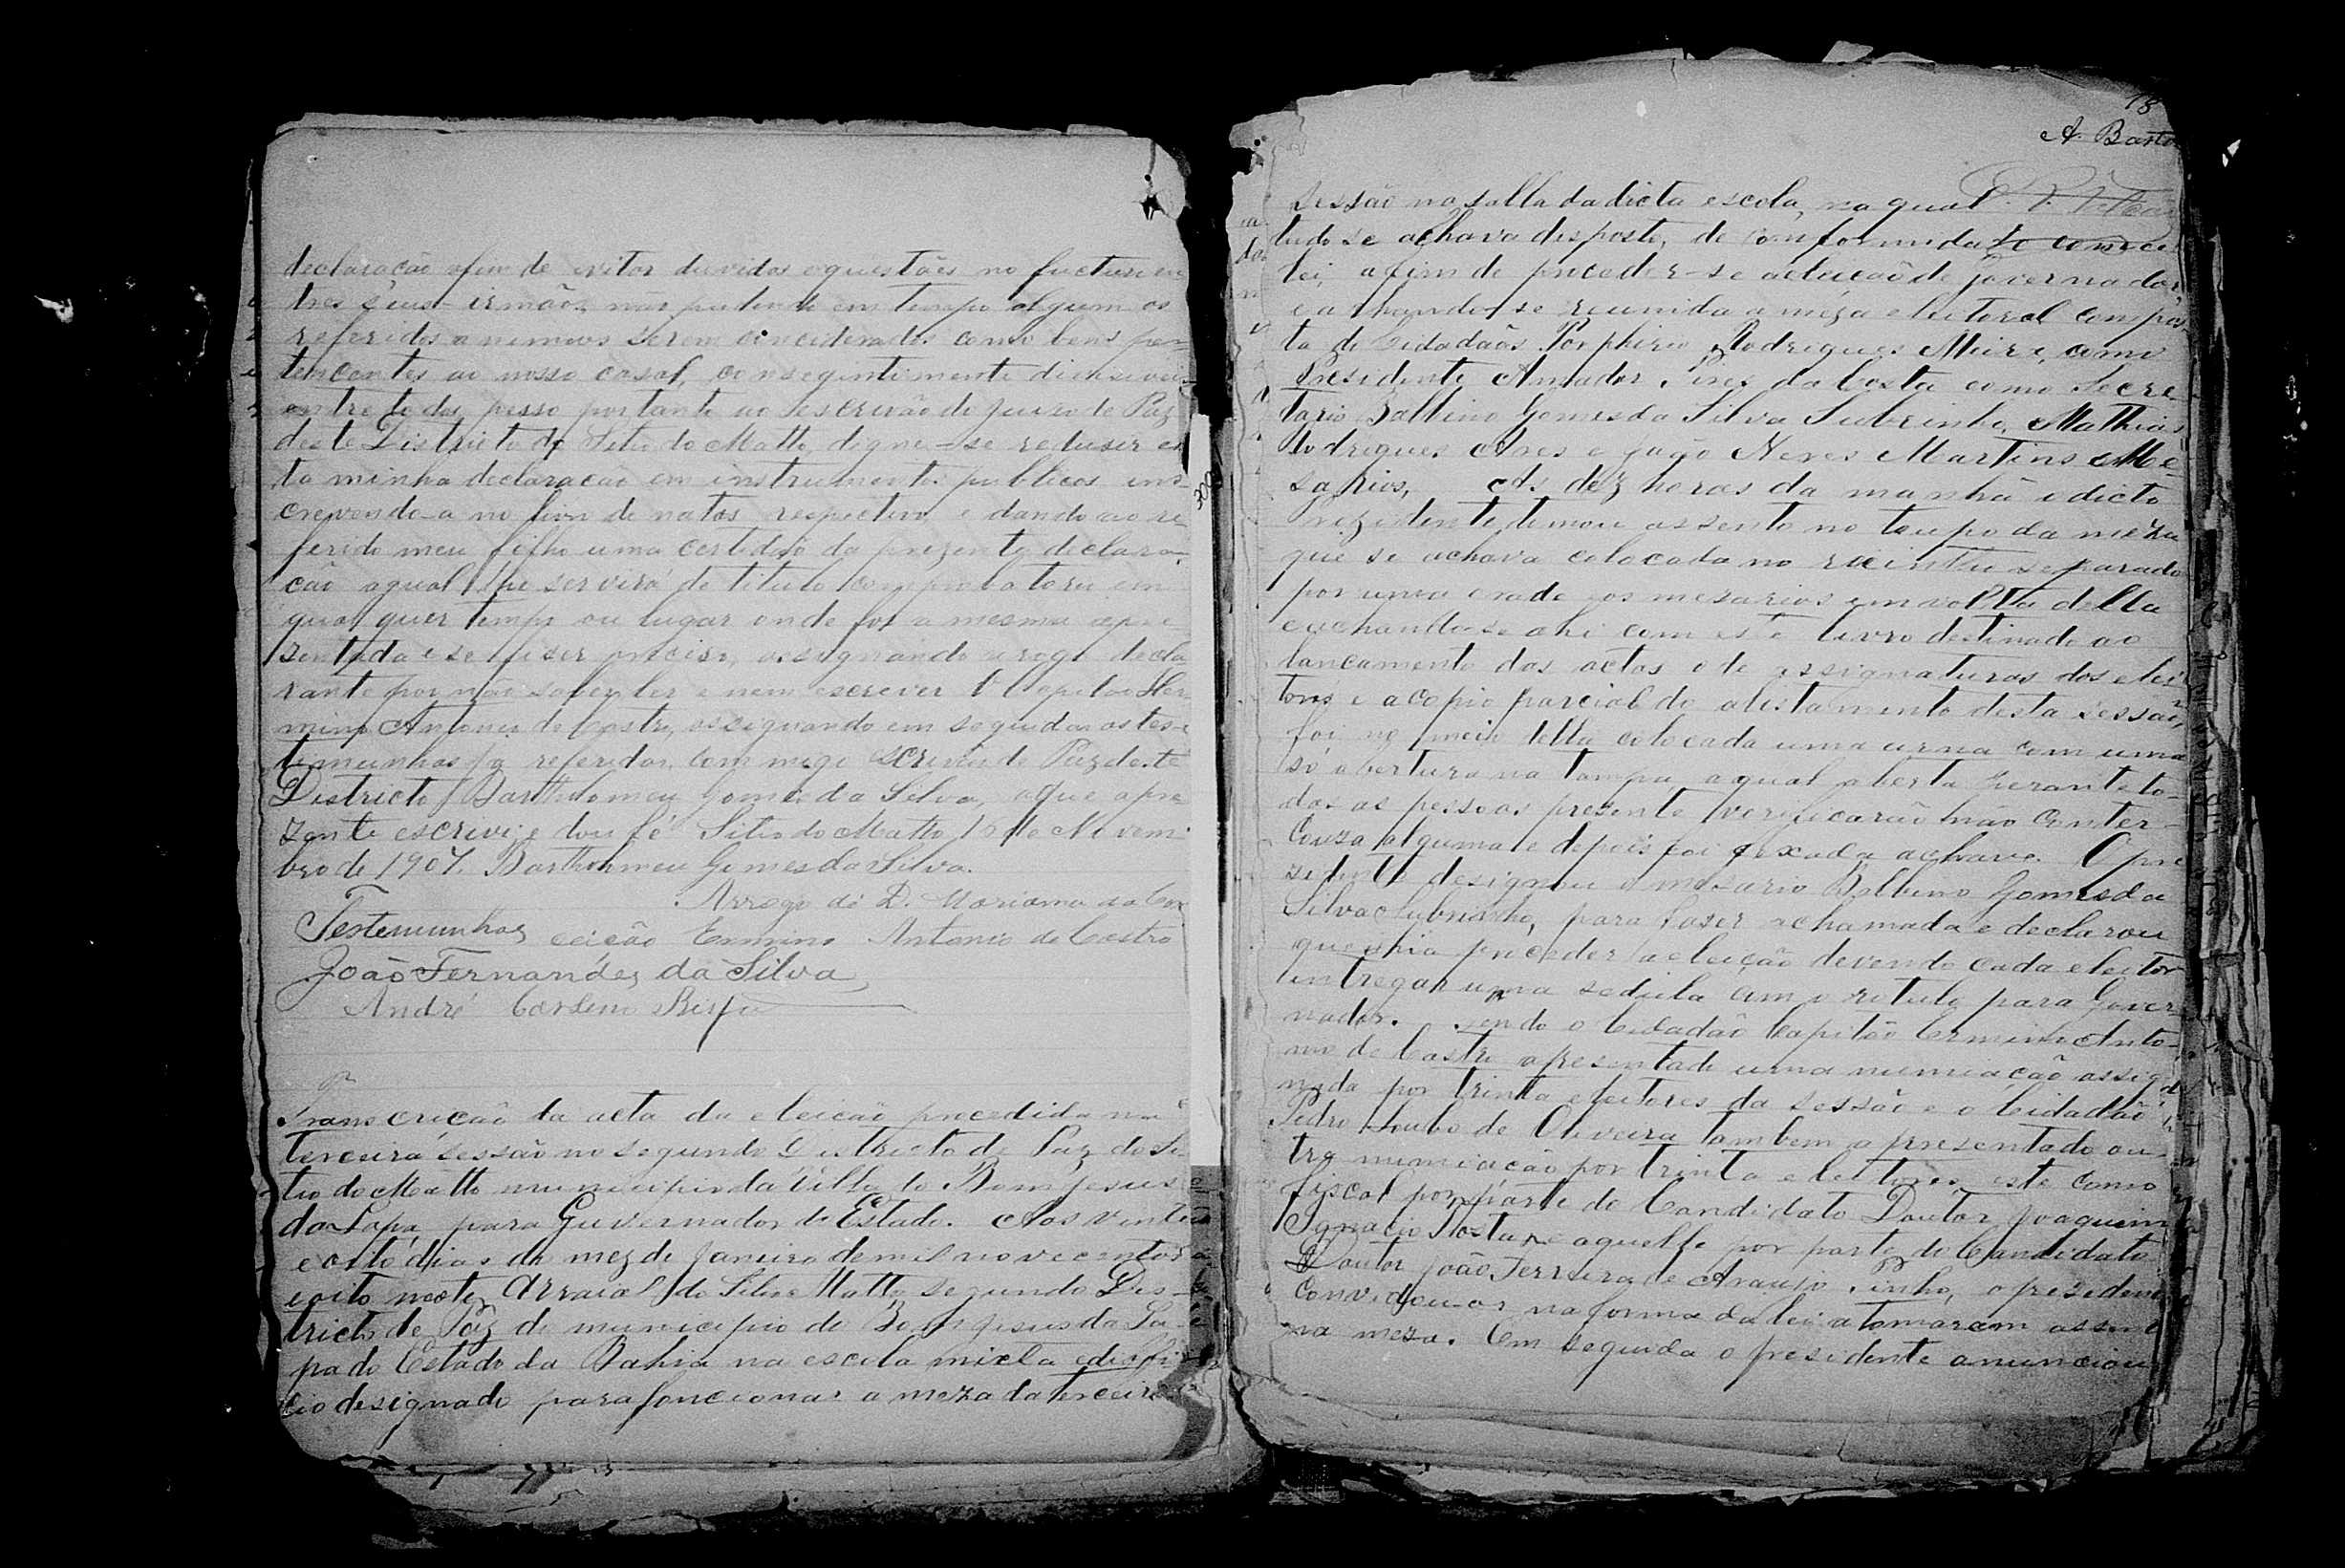 declaração afim de evitar duvidas e questões no fucturo en
tres seus irmãos não pudendo em tempo algum os
referidos animaes serem conciderados como bens per
tencentes ao nosso casal, consegintimente divisivei
entre todos, pesso portanto ao escrivão do juizo de Paz
deste Districto do Sitio do Matto, digne-se redusir es
ta minha declaração em instrumentos publicos ins-
crevendo-a no livro de notas respectivo e dando ao re
ferido meu filho uma certidaõ da prezente declara-
ção aqual lhe servirá de titulo comprobatorio em
qual quer tempo ou lugar onde for a mesma apre
zentada e se fiser preciso, assignando a rogo decla
rante por não saber ler e nem escrever o Capitão Her
mino Antonio de Castro, assignando em seguida as tes
temunhas ja referidas, com migo escrivão de Paz deste
Districto Bartholomeu Gomes da Silva, o que a pre
zente escrivi e dou fé Sitio do Matto 16 de Novem-
bro de 1907. Bartholomeu Gomes da Silva.
Arrogo de D. Marianna da Con
Testemunhas ceição Ermino Antonio de Castro
João Fernandes da Silva
André Bispo
Transcrição da acta da eleição procedida na
terceira sessão no segundo Districto de Paz do Si
tio do Matto municipio da Villa do Bom Jesus
da Lapa, para Guvernador do Estado. Aos vinte
e oito dias do mez de Janeiro de mil novecentos
e oito neste Arraial do Sitio Matto segundo Dis-
tricto de Paz do municipio do Bom Jesus da La
pa do Estado da Bahia na escola mixta edisfi
cio designado para foncionar a meza da terceira
18
A. Bastos
Sessão na salla da dicta escola, na qual
tudo se achava desposto, de comformidade com a
lei, afim de proceder-se a eleição de Governador,
e achando-se reunida a meza eleitoral compos-
ta de Cidadãos Porphirio Rodrigues Meira, como
Presidente Amador Pires da Costa como Secre
tario Balbino Gomes da Silva Subrinho, Mathias
Rodrigues Alves e João Neves Martins Me-
sarios, As dez horas da manhã o dicto
prezidente tomou assento no toupo da meza
que se achava colocada no recinto separado
por uma grade e os mezarios em volta della
e achando-se ahi com este livro destinado ao
lançamento das actas e de assignaturas dos elei
tores e a copia parcial do alistamento desta sessaõ,
foi no meio della colocada uma urna com uma
só abertura na tampa, a qual aberta perante to-
das as pessoas presente verificarão não conter
Couza alguma e depois foi fexada a chave. O pre
zidente designou o mesario Balbino Gomes da
Silva Subrinho, para faser a chamada e declarou
que hia proceder a eleição devendo cada eleitor
entregar uma sedula com o rotulo para Gover
nador. Sendo o Cidadão Capitão Ermino Anto-
nio de Castro apresentado uma numiação assig-
nada por trinta eleitores da sessão e o Cidadão
Pedro de Oliveira tambem apresentado ou-
tra numiação por trinta eleitores, este como
fiscal por parte do Candidato Doutor Joaquim
Ignacio Tosta, e aquelle por parte do Candidato
Doutor João Ferreira de Araujo Pinho, o presidente
Convidou os na forma da lei a tomarem assento
na meza. Em seguida o presidente anunciou